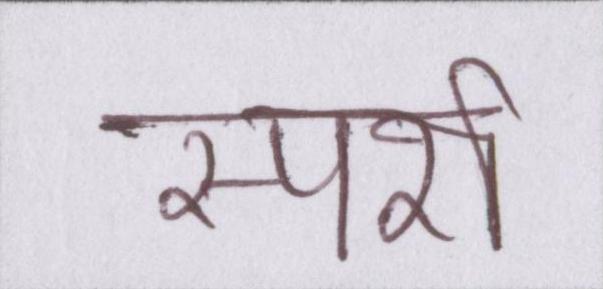 स्पर्श